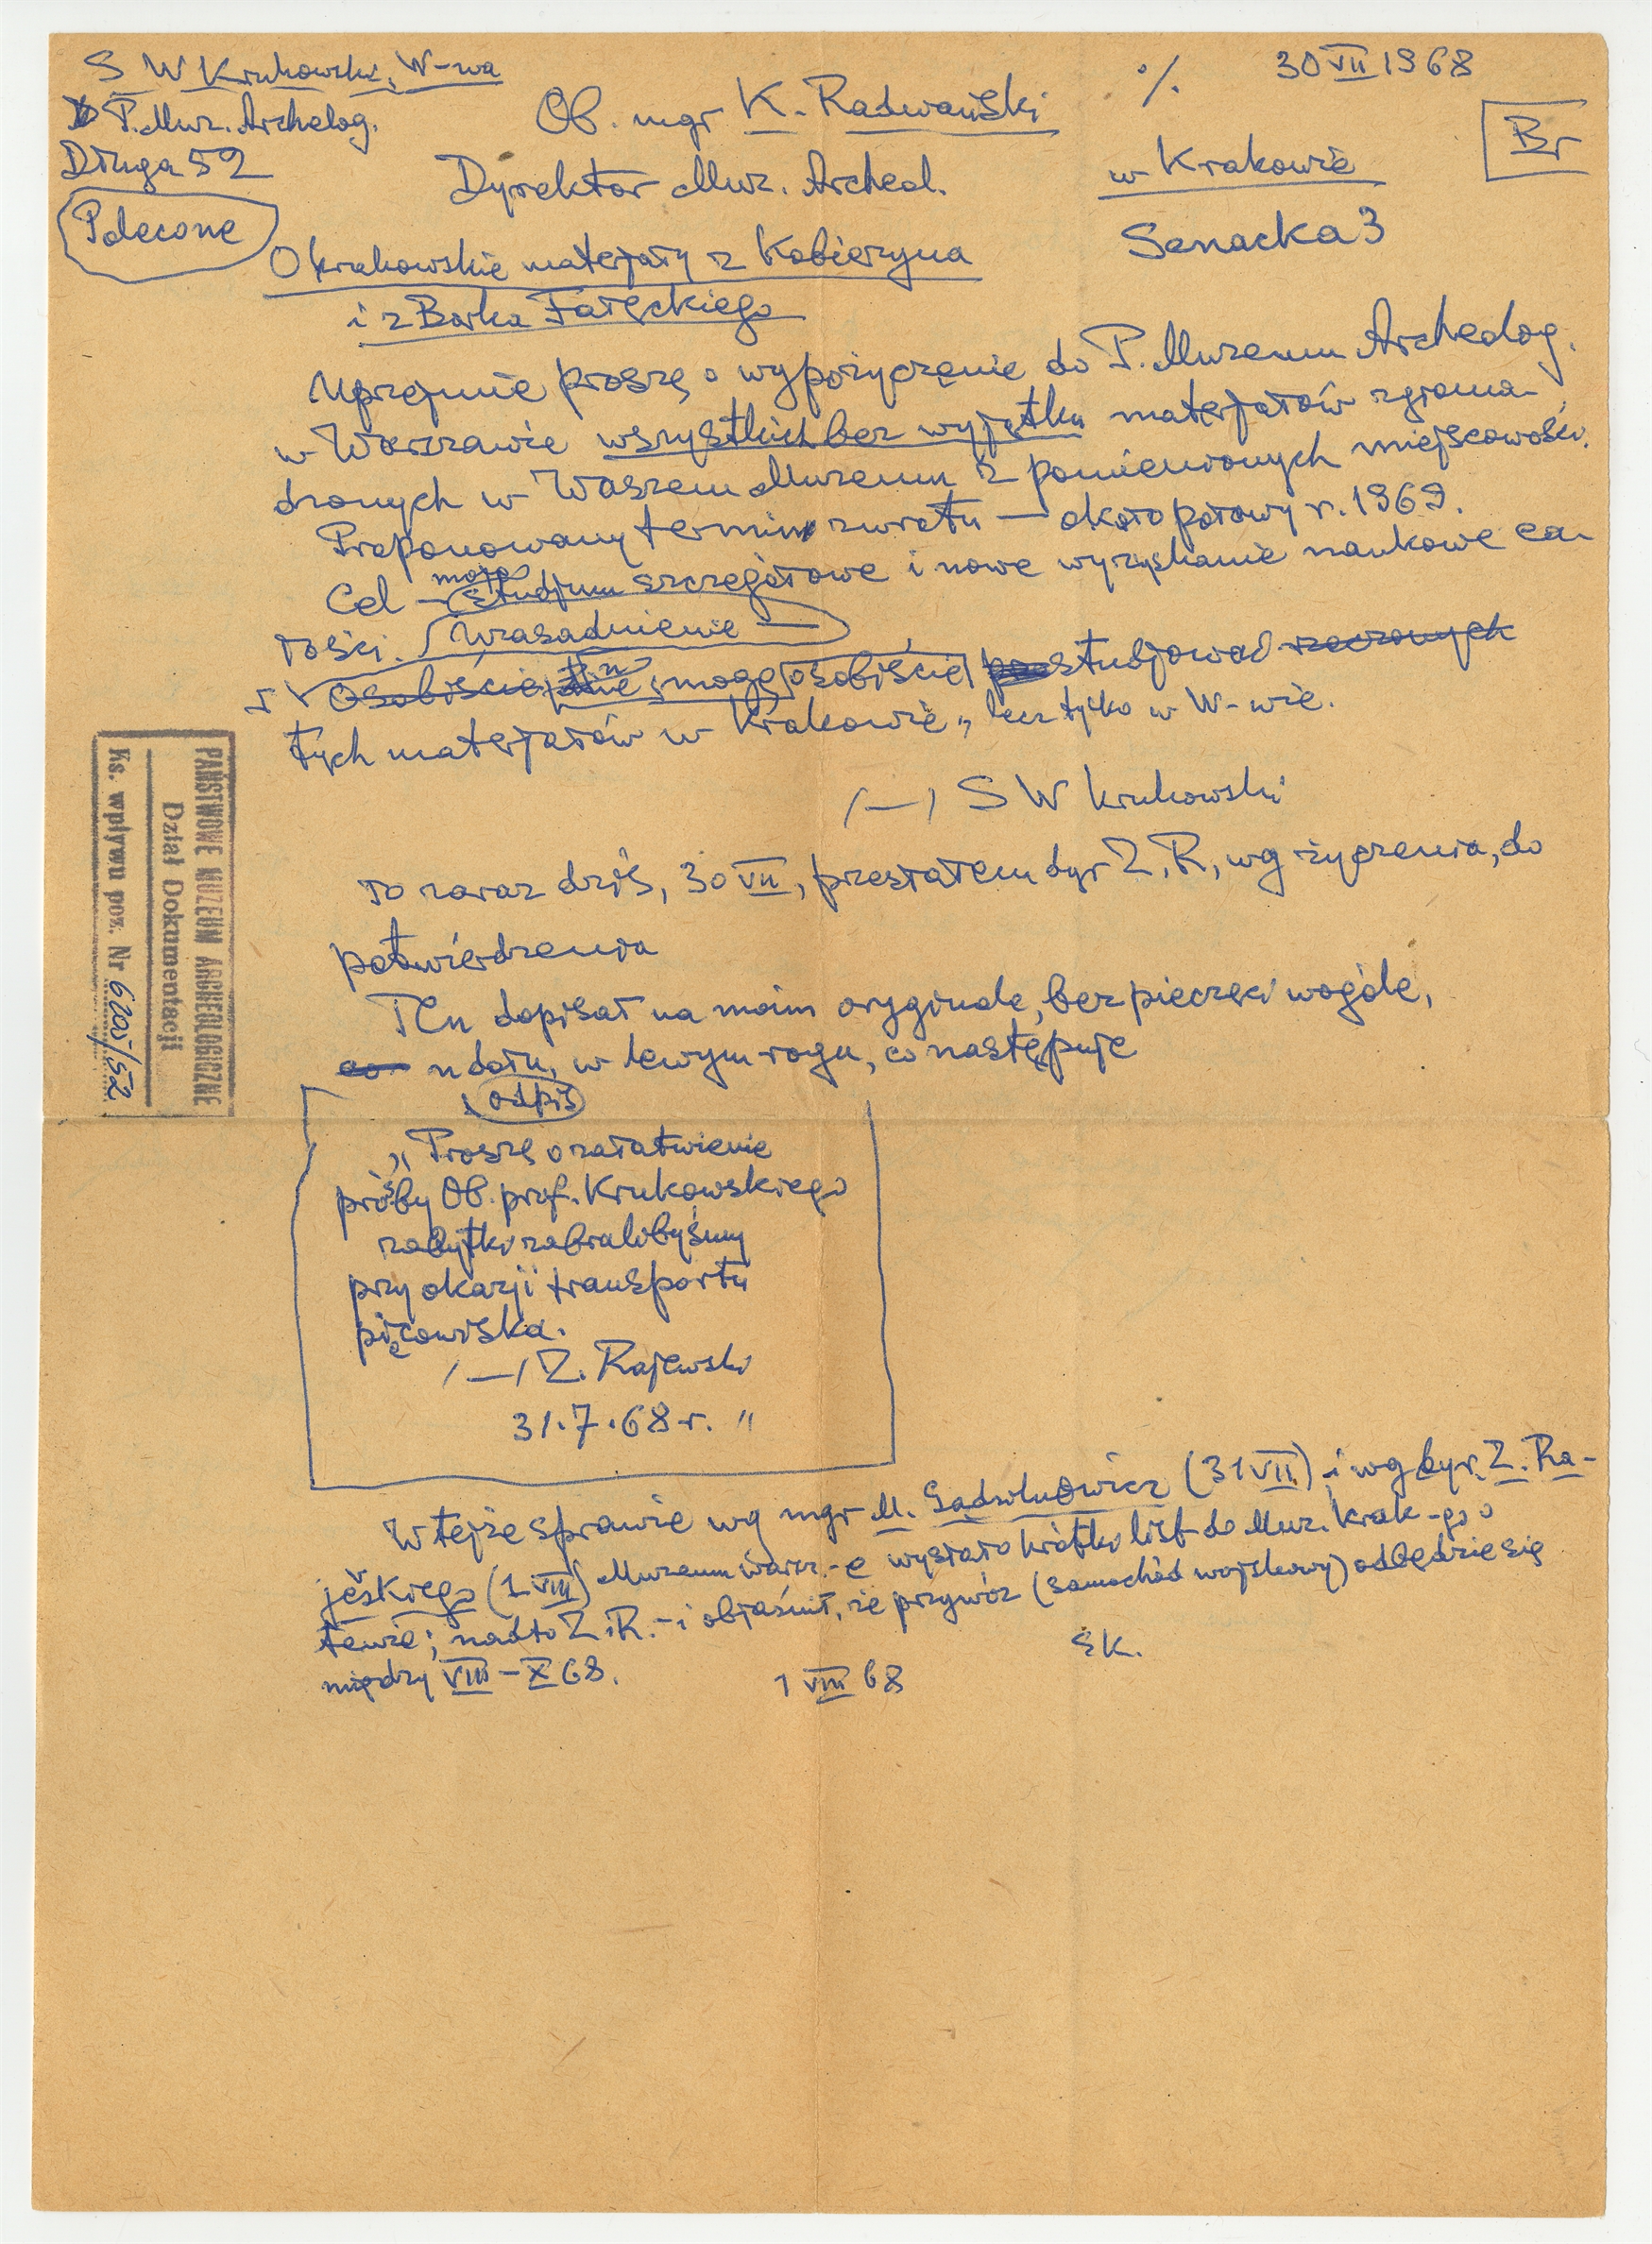 S W Krukowski, W-wa
P. Muz. Archelog.
Długa 52
Polecone
%
30 VII 1968
Br
Ob. mgr K. Radwański
Dyrektor Muz. Archeol.
w Krakowie
Senacka 3
O krakowskie materjały z Kobierzyna
i z Borku Fałęckiego
Uprzejmie proszę o wypożyczenie do P. Muzeum Archeolog.
w Warszawie wszystkich bez wyjątku materjałów zgroma-
dzonych w Waszem Muzeum z pomienionych miejscowości.
Proponowany termin zwrotu — około połowy r. 1969.
Cel — moje studjum szczegółowe i nowe wyzyskanie naukowe ca-
łości. Uzasadnienie —
Osobiście nie mogę osobiście studjować rzeczonych
tych materjałów w Krakowie, lecz tylko w W-wie.
/—/ S W Krukowski
To zaraz dziś, 30 VII, przesłałem dyr Z. R, wg życzenia, do
potwierdzenia
Ten dopisał na moim oryginale, bez pieczęci wogóle,
co u dołu, w lewym rogu, co następuje
odpis
„Proszę o załatwienie
prośby Ob. prof. Krukowskiego
zabytki zabralibyśmy
przy okazji transportu
pięcowiska.
/—/ Z. Rajewski
31.7.68 r. "
W tejże sprawie wg mgr M. Gądzikiewicz (31 VII) i wg dyr. Z. Ra-
jeskiego (1 VIII) Muzeum warsz.-e wysłało krótki list do Muz. krak-go o
temże; nadto Z i R.-i objaśnił, że przywóz (samochód wojskowy) odbędzie się
między VIII – X 68.
1 VIII 68
SK.
PAŃSTWOWE MUZEUM ARCHEOLOGICZNE
Dział Dokumentacji
Ks. wpływu poz. Nr